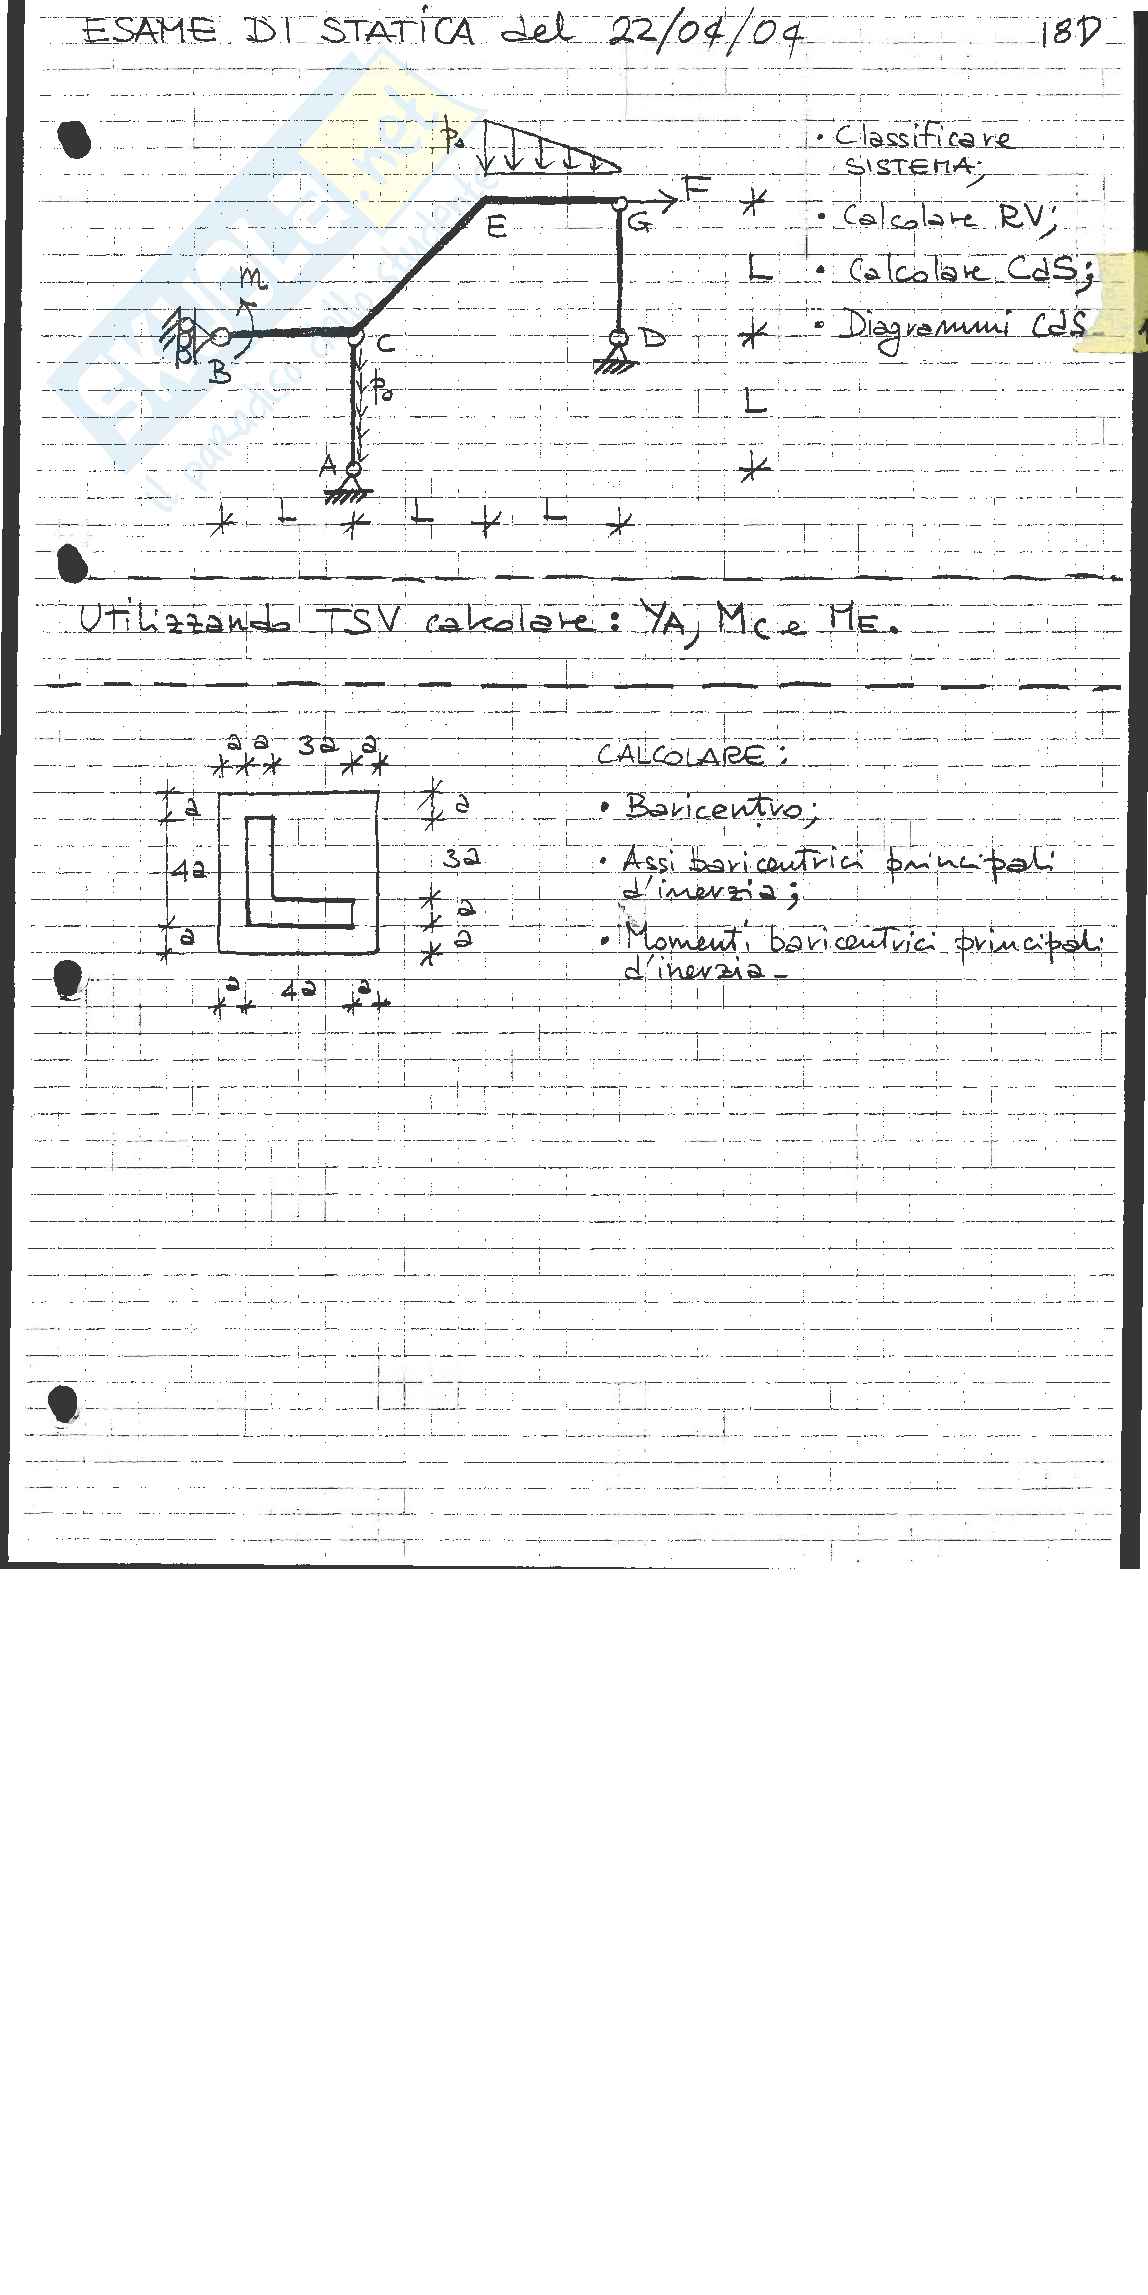 ESAME DI STATICA del 22/04/04 18D
p₀
• Classificare
SISTEMA;
F
E
G
• Calcolare RV;
m
L
• Calcolare CdS;
B
C
D
• Diagrammi CdS
p₀
L
A
L L L
Utilizzando TSV calcolare: YA, MC e ME.
a a 3a a
CALCOLARE:
a
a
• Baricentro;
4a
3a
• Assi baricentrici principali
d'inerzia;
a
a
a
• Momenti baricentrici principali
d'inerzia-
a 4a a
SKUOLA.net